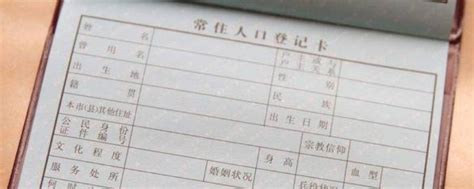 常住人口登记卡
姓名 户主或与户主关系
曾用名 性别
出生地 民族
籍贯 出生日期
本市(县)其他住址 宗教信仰
公民身份证件编号
文化程度 婚姻状况 血型
服务处所 兵役状况
何时